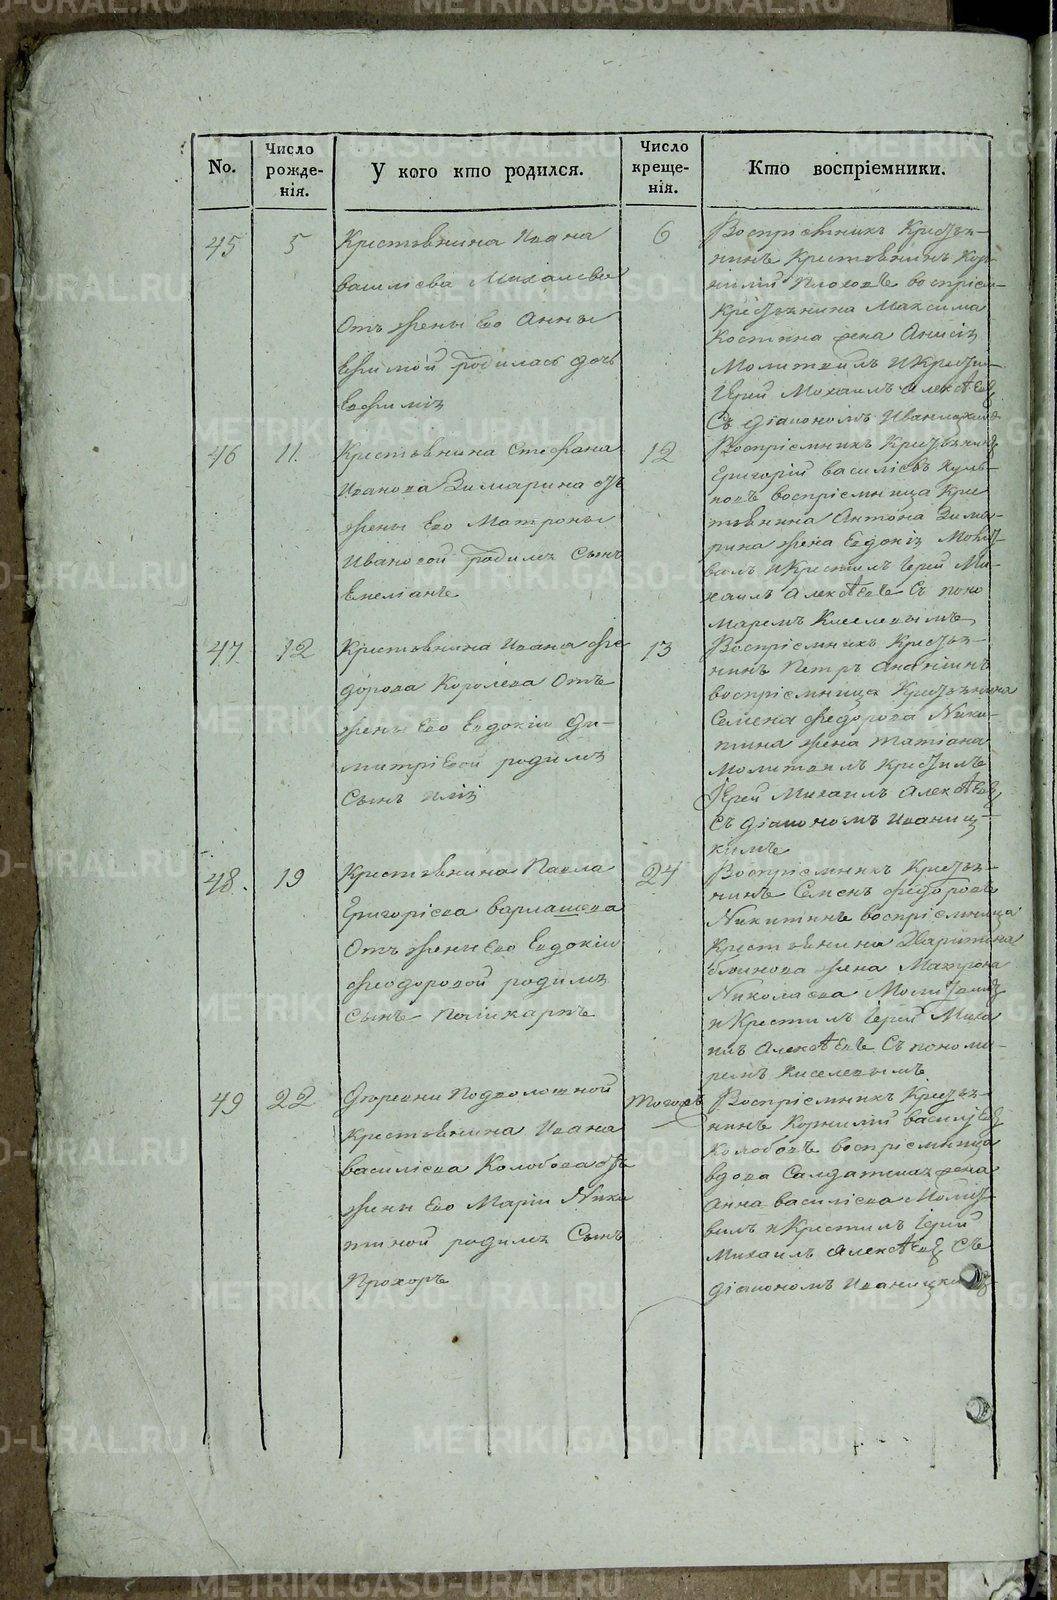 No.
Число рожде-нія.
У кого кто родился.
Число креще-нія.
Кто воспріемники.
45
5
Крестьянина Ивана
Василіева Михалева
отъ жены Его Анны
родилась дочь
Евфимія
6
Воспріемникъ Крестья-
нинъ Крестьянинъ Кор-
нилій воспріем-
Крестьянина Максима
Костина жена Анисія
Молитвилъ и Крести-
Іерей Михаилъ Алексѣев
Съ діакономъ
46
11.
Крестьянина Стефана
Иванова Зимарина отъ
жены Его Матроны
Ивановой родился Сынъ
Емеліанъ
12
Воспріемникъ Крестьянинъ
Григорій Василіевъ
воспріемница Кре
тьянина Антона Зима-
рина жена Евдокія Молит-
вилъ и Крестилъ Іерей Ми-
хаилъ Алексѣевъ Съ поно
маремъ Киселевымъ
47
12
Крестьянина Ивана Фе
дорова Королева отъ
жены Его Евдокіи Ди-
митріевой родился
Сынъ Илія
13
Воспріемникъ Крестья-
нинъ Петръ Ананьинъ
воспріемница Крестьянина
Семена Федорова Ники-
тина жена Татіана
Молитвилъ Крестилъ
Іерей Михаилъ Алексѣев
Съ діакономъ Иваниц-
кимъ
48.
19
Крестьянина Павла
Григоріева Варлашева
отъ жены Его Евдокіи
Феодоровой родился
Сынъ Поликарпъ
24
Воспріемникъ Крестья-
нинъ Семенъ Федоровъ
Никитинъ воспріемница
Крестьянина Харитона
Блинова жена Матрона
Николаева Молитвилъ
и Крестилъ Іерей Миха
илъ Алексѣевъ Съ понома-
ремъ Киселевымъ
49
22
Деревни Подволошной
Крестьянина Ивана
Василіева Колобова отъ
жены Его Маріи Ники
тиной родился Сынъ
Прохоръ
тогожъ
Воспріемникъ Крестья-
нинъ Корнилій Василіев
Колобовъ воспріемница
вдова Салдатская жена
Анна Василіева Молит-
вилъ и Крестилъ Іерей
Михаилъ Алексѣев Съ
діакономъ Иваницким
METRIKI.GASO-URAL.RU